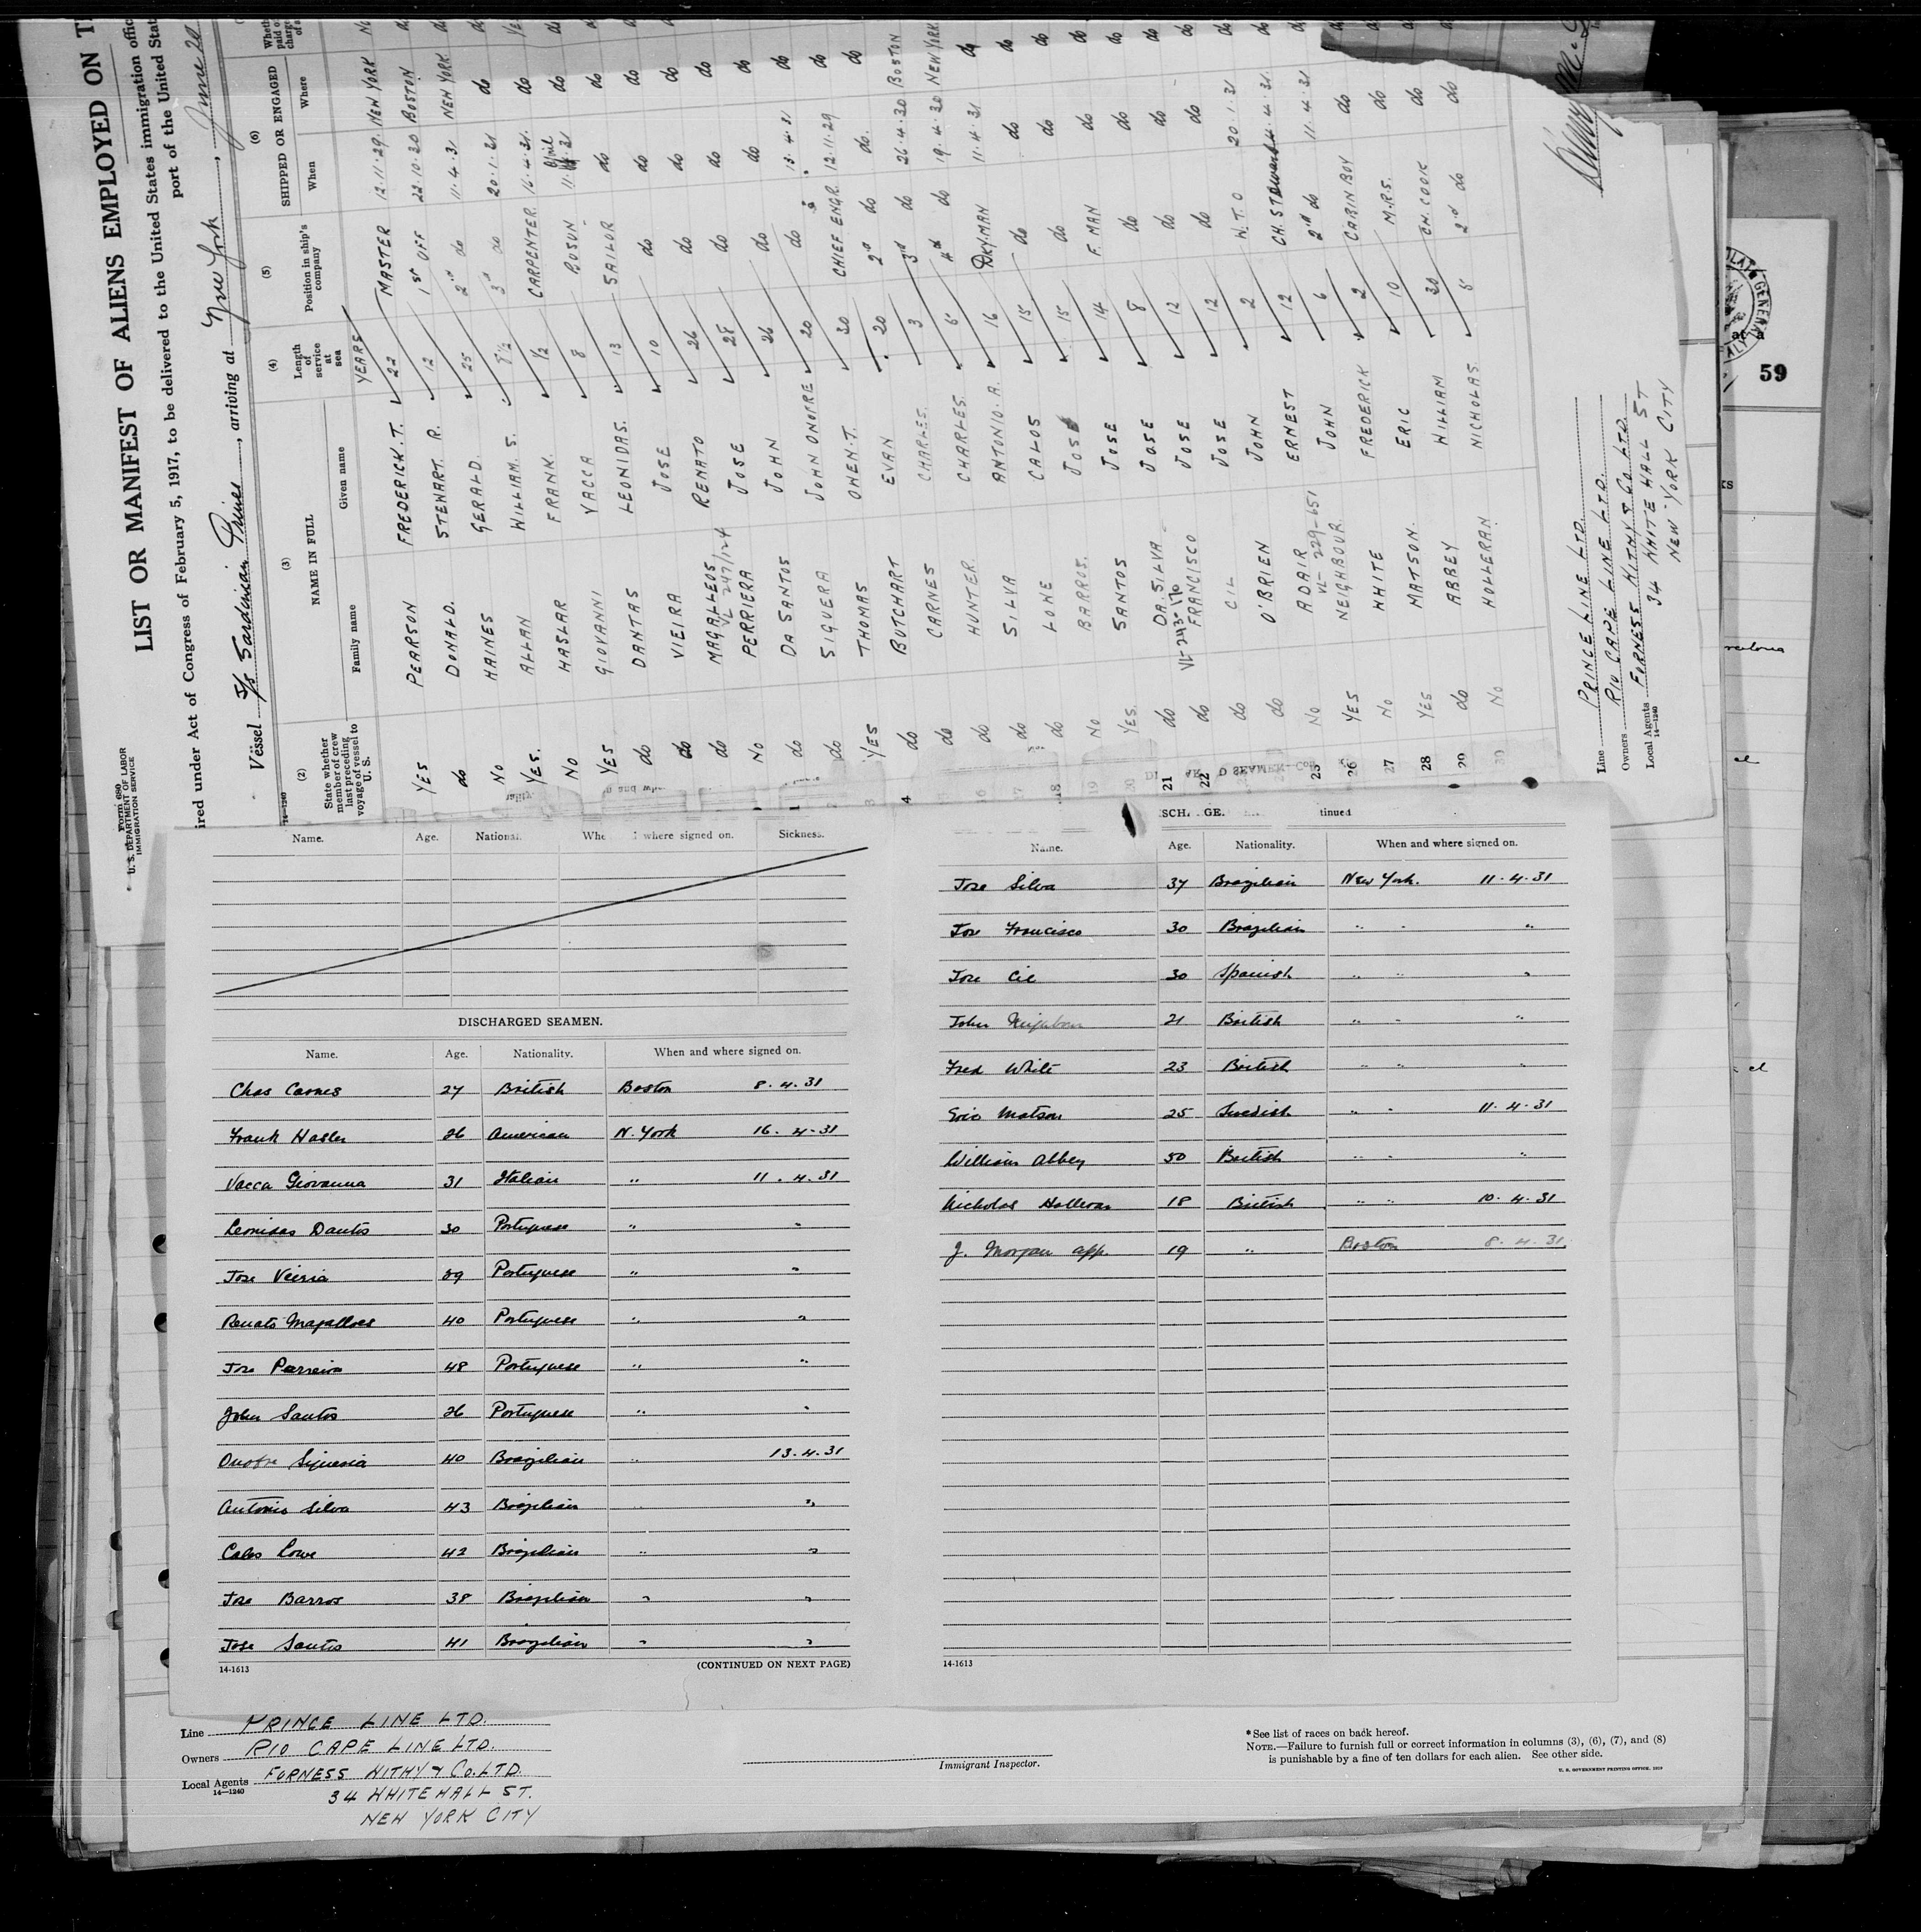 LIST OR MANIFEST OF ALIENS EMPLOYED ON T
ired under Act of Congress of February 5, 1917, to be delivered to the United States immigration offic
port of the United Stat
Form 680
U. S. DEPARTMENT OF LABOR
IMMIGRATION SERVICE
Vessel S/S Sardinian Prince, arriving at New York, June 20
14-1240
(2) (3) (4) (5) (6)
State whether member of crew last preceding voyage of vessel to U. S.
NAME IN FULL
Family name Given name
Length of service at sea
Position in ship's company
SHIPPED OR ENGAGED
When Where
YEARS
YES PEARSON FREDERICK. T. 22 MASTER 12.11.29. NEW YORK
do DONALD. STEWART. R. 12 1st OFF 22.10.30 BOSTON
No HAINES GERALD. 25 2nd do 11.4.31 NEW YORK
YES. ALLAN WILLIAM. S. 8½ 3rd do 20.1.31 do
No HASLAR FRANK. ½ CARPENTER. 16.4.31. do
YES GIOVANNI VACCA 8 BOSUN 11. April 31 do
do DANTAS LEONIDAS. 13 SAILOR do do
do VIEIRA JOSE 10 do do do
do MAGALLEOS RENATO 26 do do do
VL 247/124
No PERRIERA JOSE 28 do do do
do DA SANTOS JOHN 26 do do do
do SIQUERA JOHN ONOFRE 20 do 13.4.31 do
YES THOMAS OWEN. T. 30 CHIEF ENGR. 12.11.29 do
do BUTCHART EVAN 20 2nd do do. do
do CARNES CHARLES. 3 3rd do 26.4.30 BOSTON
do HUNTER CHARLES. 5 4th do 19.4.30 NEW YORK.
do SILVA ANTONIO. A. 16 DKY.MAN 11.4.31 do
do LOWE CALOS 15 do do do
No BARROS. JOSE 15 do do do
YES. SANTOS JOSE 14 F. MAN do do
21 do DA. SILVA JOSE 8 do do do
VL-243-170
22 do FRANCISCO JOSE 12 do do do
do CIL JOSE 12 do do do
do O'BRIEN JOHN 2 W. T. O 20.1.31 do
25 No ADAIR ERNEST 12 CH. STEWARD 4.4.31. do
VL-229-651
26 YES NEIGHBOUR JOHN 6 2nd do 11.4.31 do
27 No WHITE FREDERICK 2 CABIN BOY do do
28 YES MATSON. ERIC 10 M.R.S. do do
29 do ABBEY WILLIAM 30 CH. COOK do do
30 No HOLLERAN NICHOLAS. 5 2nd do do do
Line PRINCE LINE LTD.
Owners RIO CAPE LINE LTD.
Local Agents FURNESS WITHY & CO LTD.
14-1240
34 WHITE HALL ST
NEW YORK CITY
59
Name. Age. National. Whe where signed on. Sickness.
DISCHARGED SEAMEN.
Name. Age. Nationality. When and where signed on.
Chas Carnes 27 British Boston 8.4.31
Frank Hasler 26 American N. York 16.4.31
Vacca Giovanna 31 Italian " 11.4.31
Leonidas Dantos 30 Portuguese " "
Jose Veiria 39 Portuguese " "
Renato Magalloes 40 Portuguese " "
Jose Parreira 48 Portuguese " "
John Santos 26 Portuguese " "
Onofre Siqueria 40 Brazilian " 13.4.31
Antonio Silva 43 Brazilian " "
Calos Lowe 42 Brazilian " "
Jose Barros 38 Brazilian " "
Jose Santos 41 Brazilian " "
14-1613 (CONTINUED ON NEXT PAGE)
SCH GE. tinued
Name. Age. Nationality. When and where signed on.
Jose Silva 37 Brazilian New York. 11.4.31
Jose Francisco 30 Brazilian " " "
Jose Cil 30 Spanish " " "
John Neighbour 21 British " " "
Fred White 23 British " " "
Eric Matson 25 Swedish " " 11.4.31
William Abbey 50 British " " "
Nicholas Holleran 18 British " " 10.4.31
J. Morgan app. 19 " Boston 8.4.31.
14-1613
Line PRINCE LINE LTD.
Owners RIO CAPE LINE LTD.
Local Agents FURNESS WITHY & CO. LTD.
14-1240
34 WHITEHALL ST.
NEW YORK CITY
Immigrant Inspector.
*See list of races on back hereof.
NOTE.—Failure to furnish full or correct information in columns (3), (6), (7), and (8)
is punishable by a fine of ten dollars for each alien. See other side.
U. S. GOVERNMENT PRINTING OFFICE, 1919